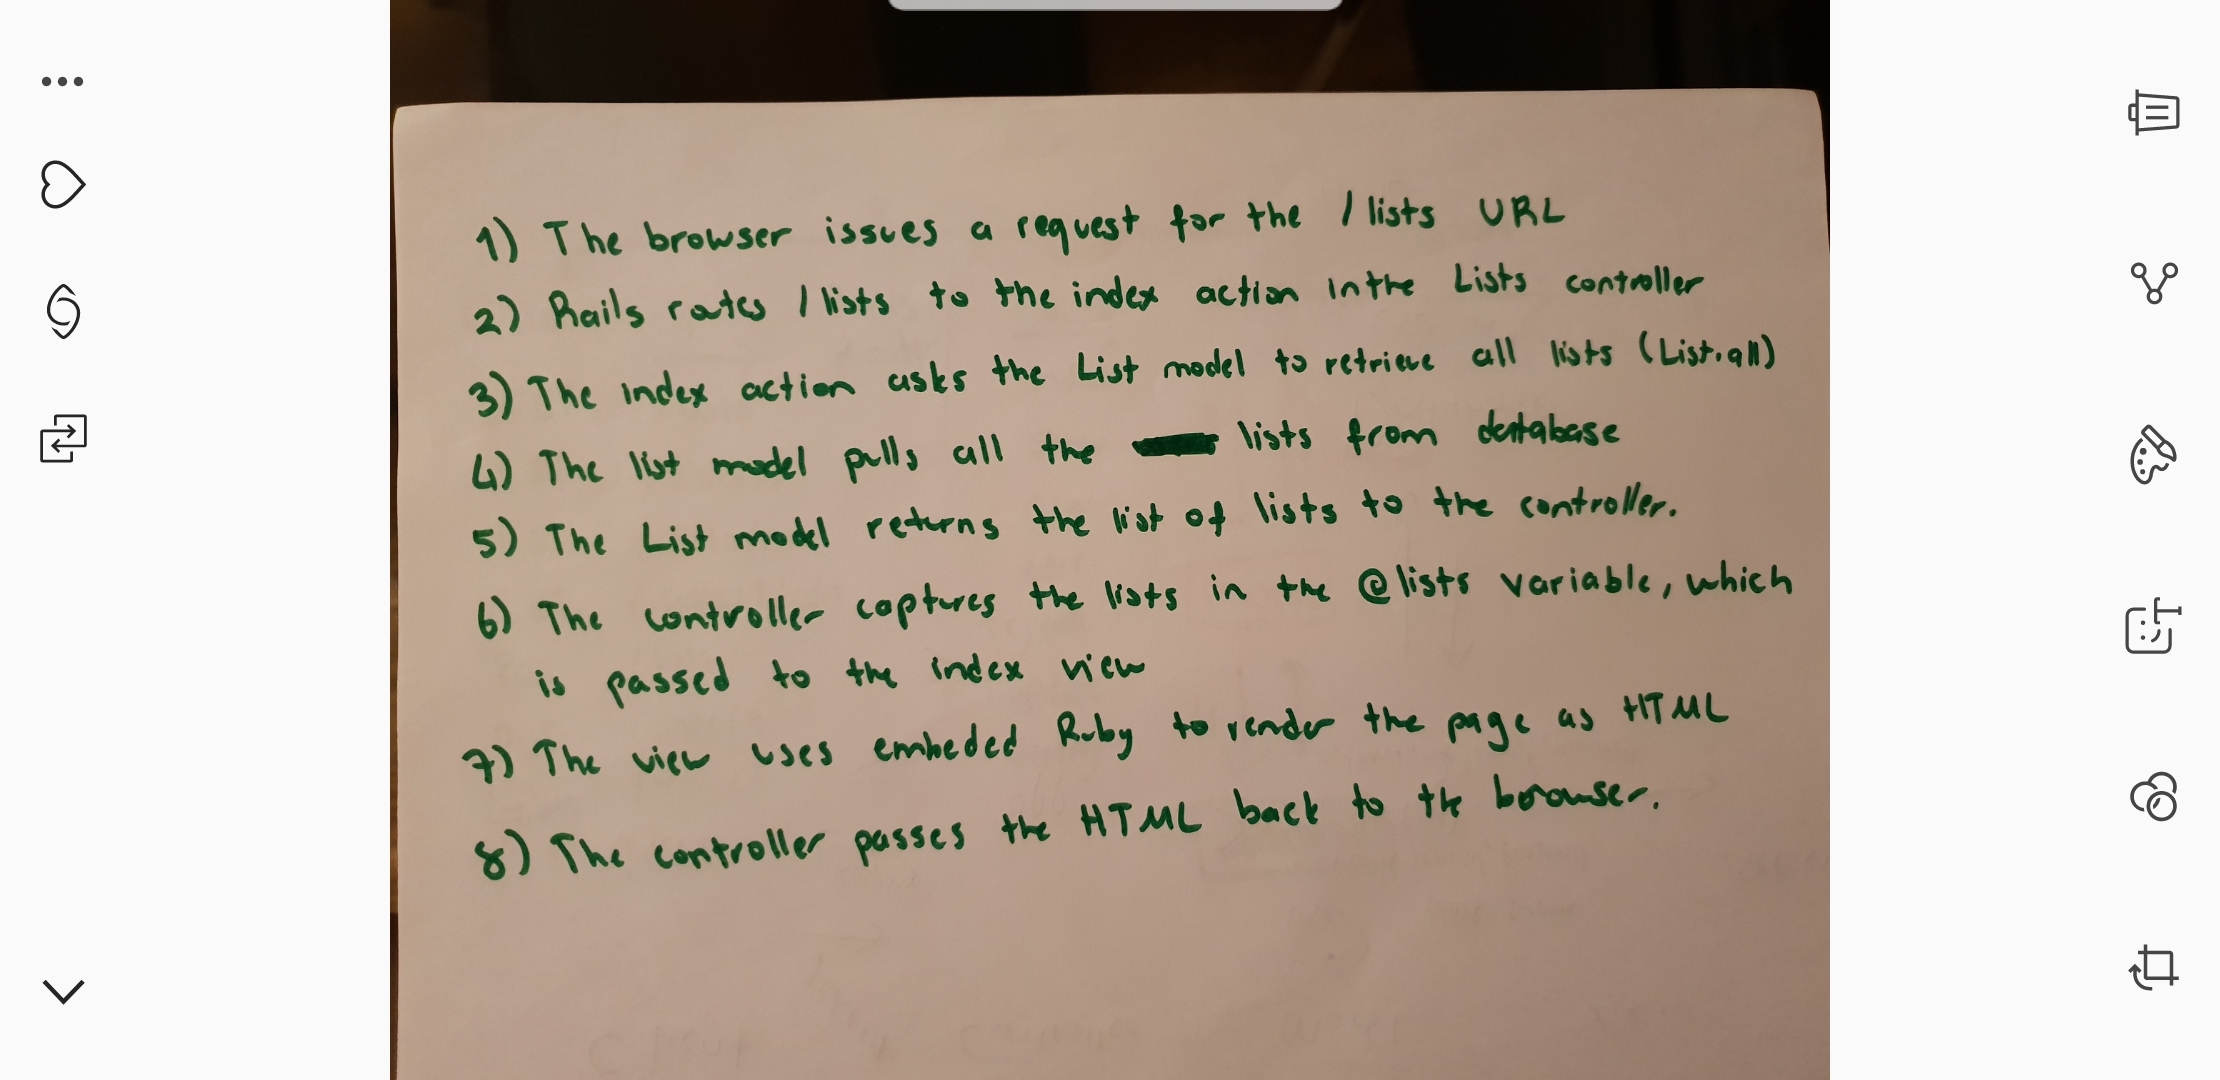 1) The browser issues a request for the /lists URL
2) Rails routes /lists to the index action in the Lists controller
3) The index action asks the List model to retrieve all lists (List.all)
4) The list model pulls all the lists from database
5) The List model returns the list of lists to the controller.
6) The controller captures the lists in the @lists variable, which
is passed to the index view
7) The view uses embeded Ruby to render the page as HTML
8) The controller passes the HTML back to the browser.